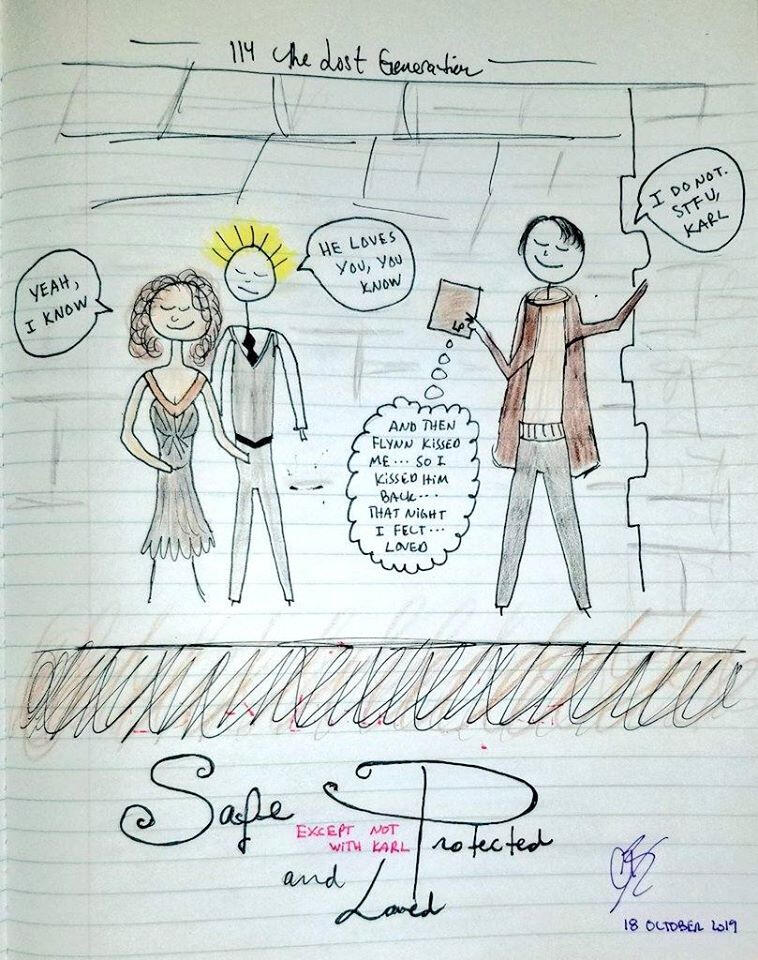 114 The Lost Generation
YEAH,
I KNOW
HE LOVES
YOU, YOU
KNOW
I DO NOT.
STFU,
KARL
LP
AND THEN
FLYNN KISSED
ME... SO I
KISSED HIM
BACK...
THAT NIGHT
I FELT...
LOVED
Safe Protected
EXCEPT NOT
WITH KARL
and Loved
18 OCTOBER 2019